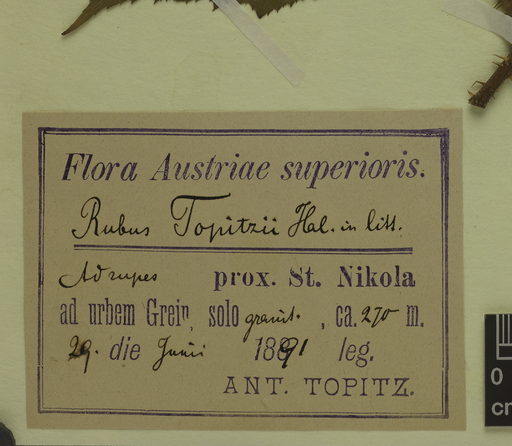 Flora Austriae superioris.
Rubus Topitzii Hal. in litt.
Ad rupes prox. St. Nikola
ad urbem Grein, solo granit. , ca. 270 m.
29. die Junii 1891 leg.
ANT. TOPITZ.
0
cm